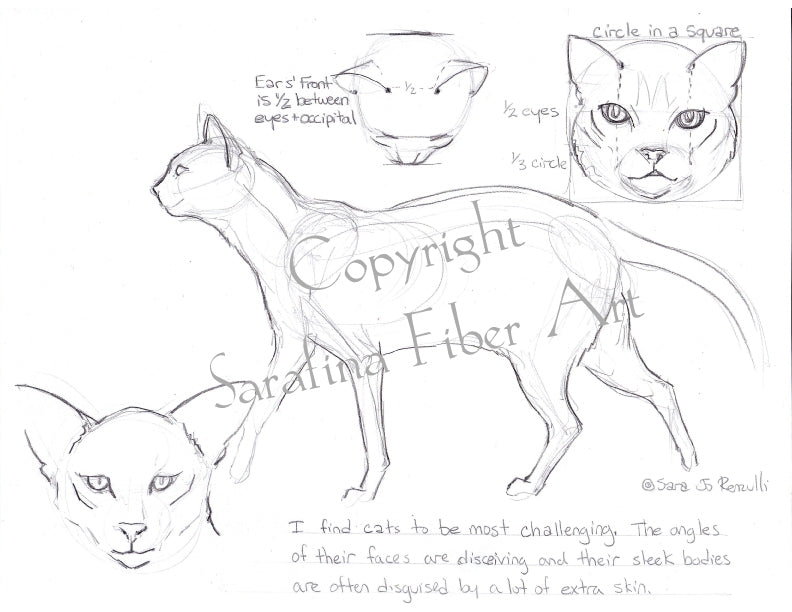 circle in a square
Ears' front
is 1/2 between
eyes + occipital
1/2
1/2 eyes
1/3 circle
Copyright
Sarafina Fiber Art
©Sara Jo Renzulli
I find cats to be most challenging. The angles
of their faces are disceiving and their sleek bodies
are often disguised by a lot of extra skin.